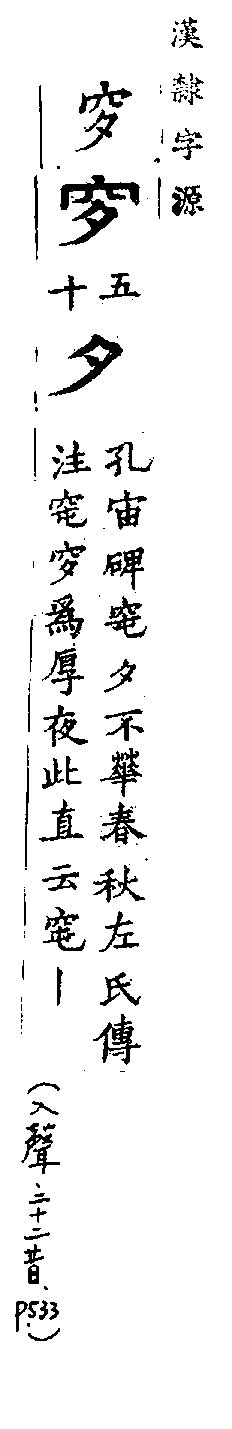 漢隸字源
穸
穸
五十
夕
孔宙碑窀夕不華春秋左氏傳
注窀穸爲厚夜此直云窀丨
(入聲、二十二昔、P.533)